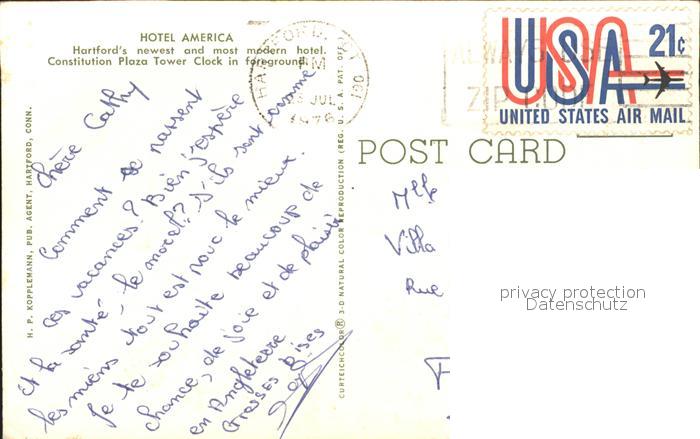 HOTEL AMERICA
Hartford's newest and most modern hotel.
Constitution Plaza Tower Clock in foreground.
H. P. KOPPLEMANN, PUB. AGENT, HARTFORD, CONN.
Chère Cathy
Comment se passent
ces vacances? Bien j'espère
Et la santé - le moral? S'ils sont comme
les miens tout est pour le mieux.
Je te souhaite beaucoup de
chance, de joie et de plaisir
en Angleterre
Grosses Bises
CURTEICHCOLOR® 3-D NATURAL COLOR REPRODUCTION (REG. U.S.A. PAT. OFF.
HARTFORD,
PM
JUL
1976
ALWAYS USE
ZIP CODE
USA 21¢
UNITED STATES AIR MAIL
POST CARD
Mlle
Villa
Rue
F
privacy protection
Datenschutz